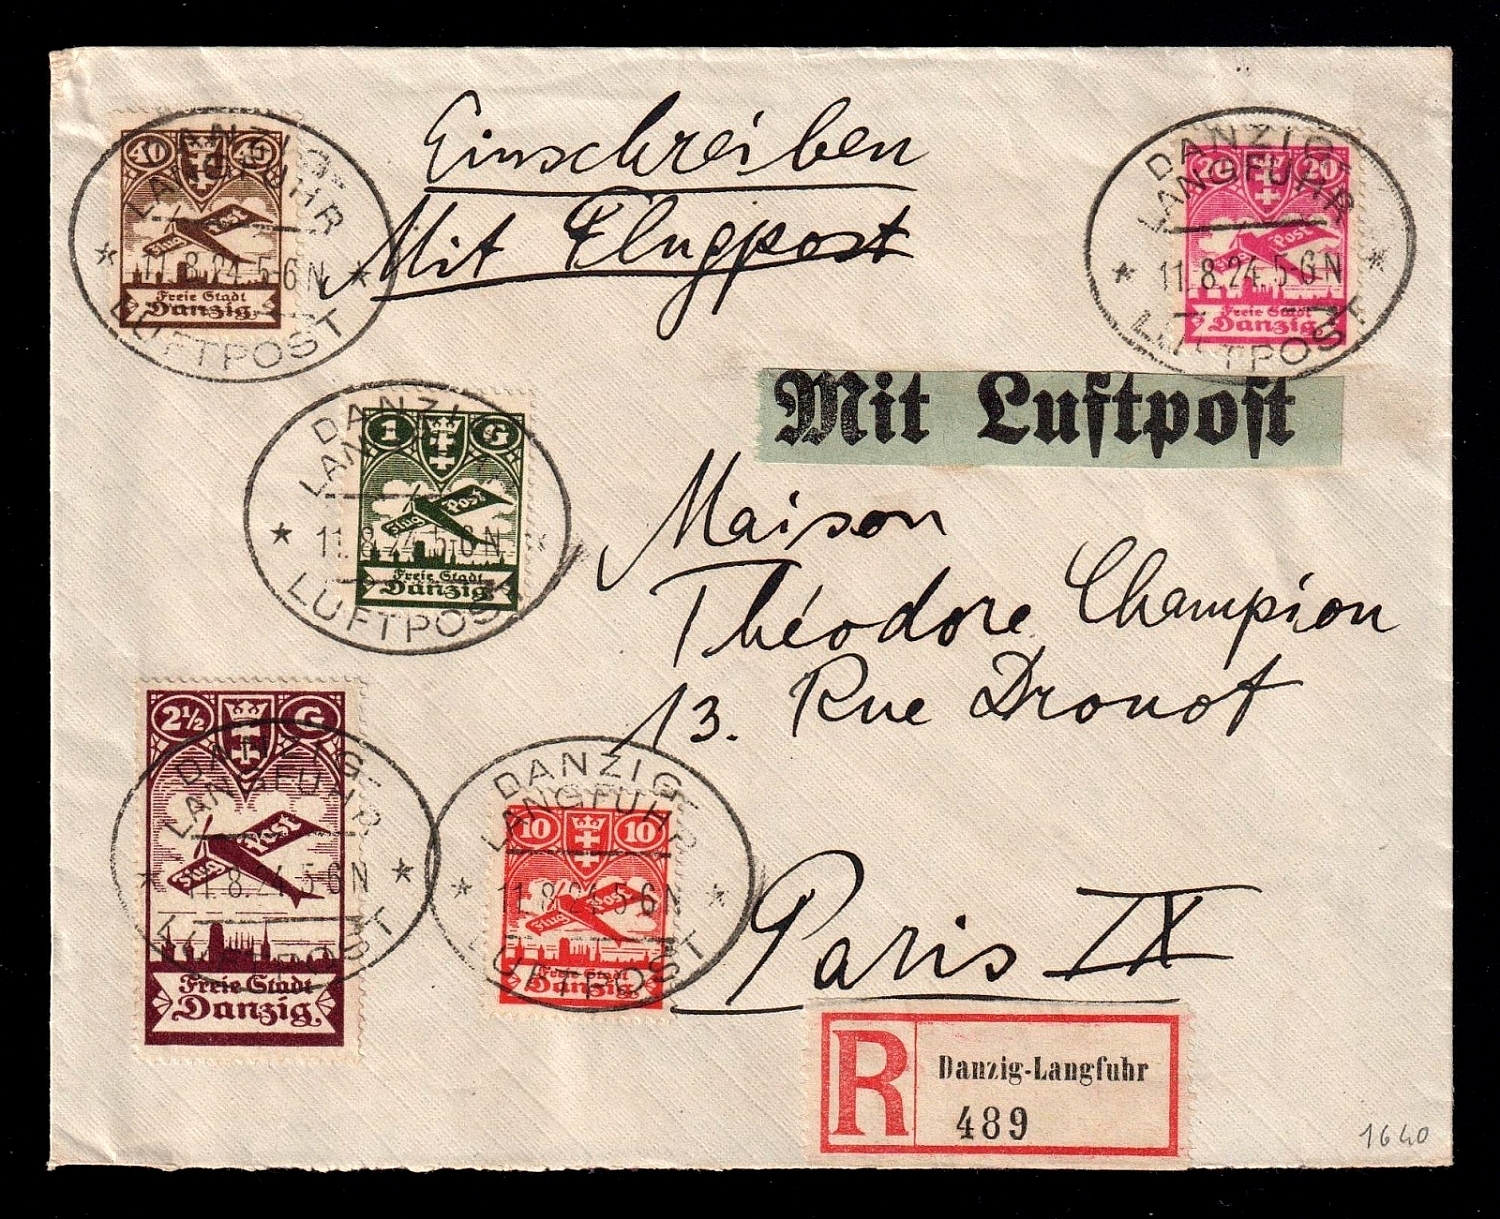 Einschreiben
Mit Flugpost
40
Flug Post
Freie Stadt
Danzig
DANZIG-
LANGFUHR
11.8.24.5-6N
LUFTPOST
20 20
Post
Freie Stadt
Danzig
DANZIG-
LANGFUHR
11.8.24.5-6N
LUFTPOST
Mit Luftpost
1 G
Flug Post
Freie Stadt
Danzig
DANZIG-
LANGFUHR
11.8.24.5-6N
LUFTPOST
Maison
Théodore Champion
13. Rue Drouot
Paris IX
2½ G
Flug Post
Freie Stadt
Danzig
DANZIG-
LANGFUHR
11.8.24.5-6N
LUFTPOST
10 10
Flug Post
Freie Stadt
Danzig
DANZIG-
LANGFUHR
11.8.24.5-6N
LUFTPOST
R
Danzig-Langfuhr
489
1640